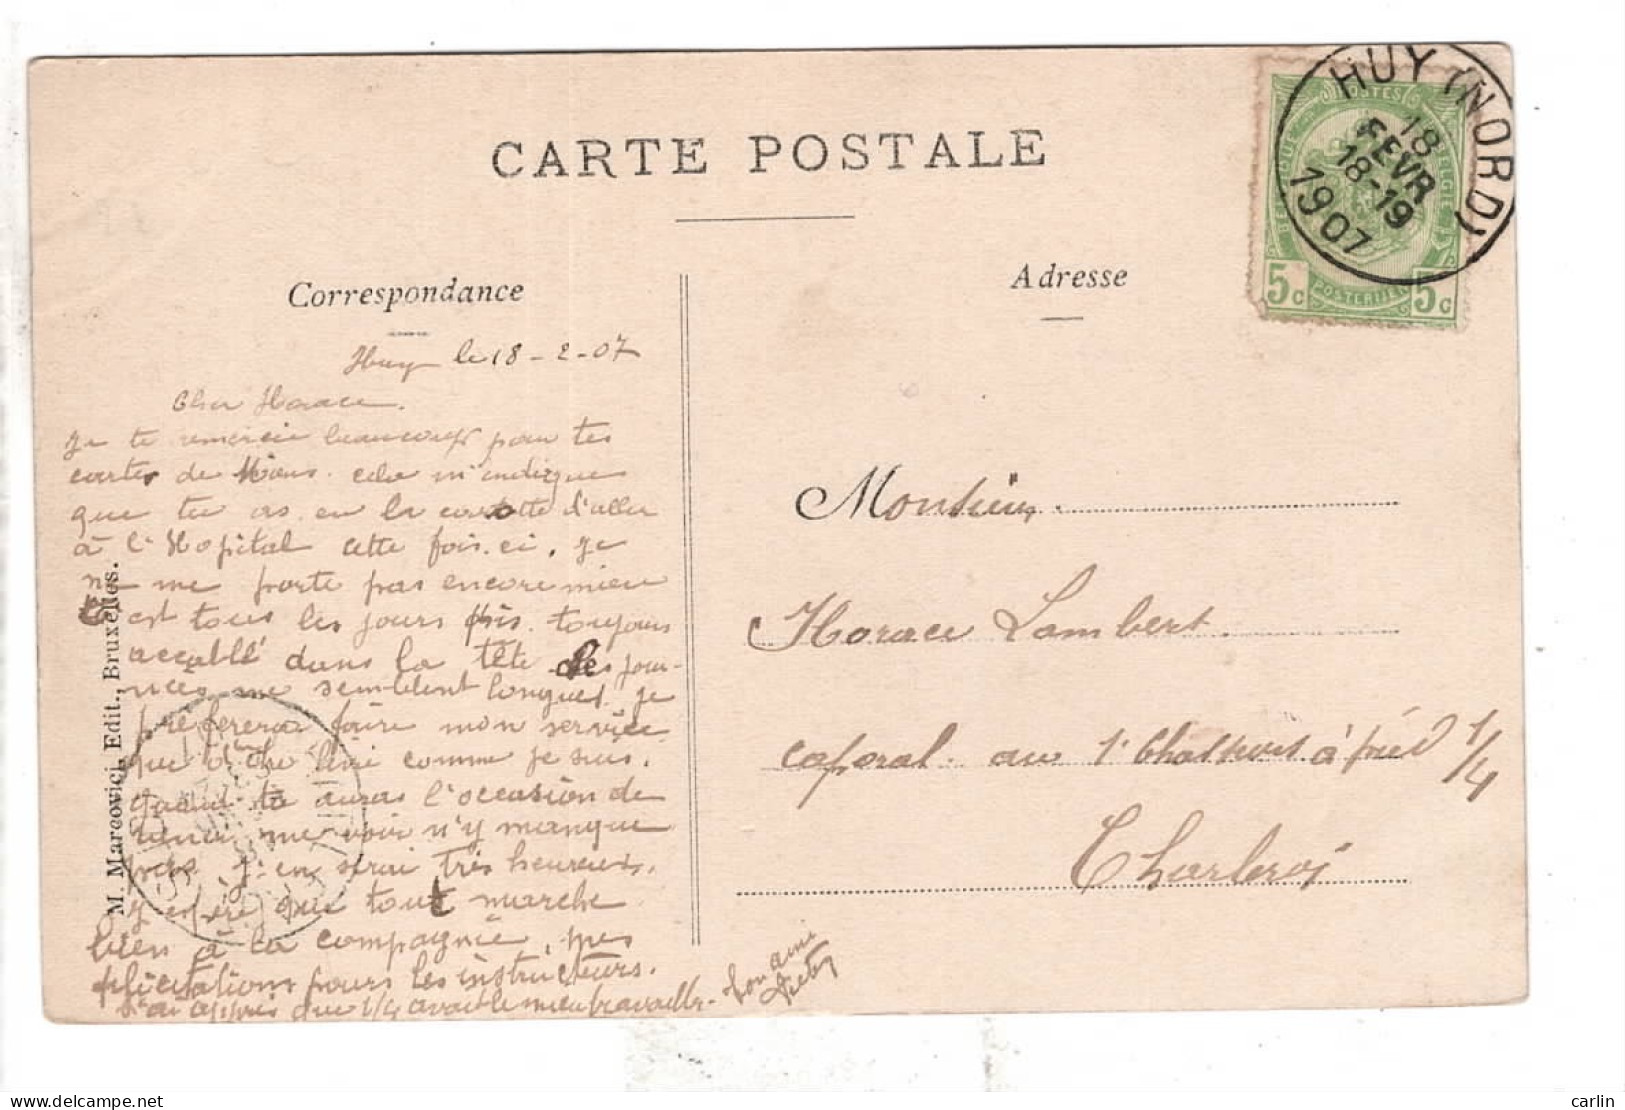 CARTE POSTALE
Correspondance
Adresse
HUY (NORD)
18
FEVR
18-19
1907
POSTES
BELGIQUE
BELGIE
5c POSTERIJEN 5c
Huy le 18-2-07
Cher Horace.
Je te remercie beaucoup pour tes
cartes de Mons. cela m'indique
que tu as eu la carotte d'aller
à l'Hopital cette fois.ci. je
ne me porte pas encore mieu
c'est tous les jours pis. toujours
accablé dans la tête les jour-
nées me semblent longues. je
préfererai faire mon service
que d'être comme je suis.
quand tu auras l'occasion de
venir me voir n'y manque
pas j'en serai très heureux.
J'espère que tout marche
bien à la compagnie, mes
félicitations pours les instructeurs.
J'ai appris que 1/4 avait le mieu travaillé.
Ton ami
Monsieur
Horace Lambert
caporal au 1r Chasseurs à pied 1/4
Charleroi
M. Marcovici, Edit., Bruxelles.
carlin